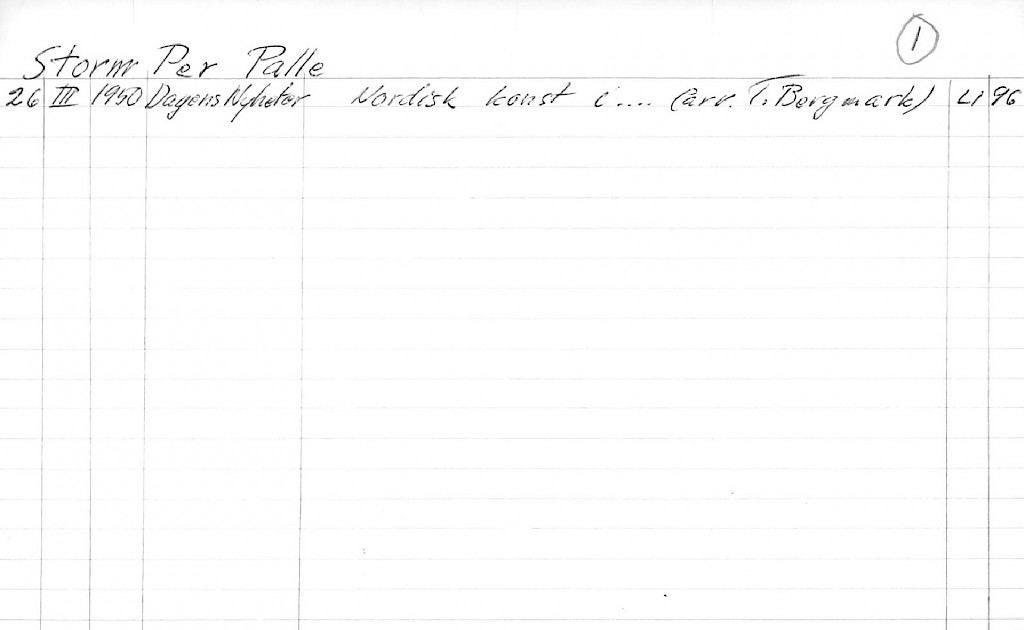 1
Storm Per Palle
26 III 1950 Dagens Nyheter Nordisk konst i.... (arr. T. Bergmark) LI 96